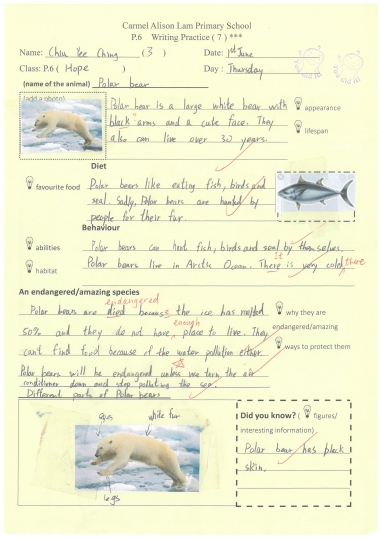 Carmel Alison Lam Primary School
P.6 Writing Practice ( 7 ) ***
Name: Chiu Yee Ching ( 3 ) Date: 1st June
Class: P.6 ( Hope ) Day : Thursday
(name of the animal) Polar bear
(add a photo)
Polar bear is a large white bear with
black arms and a cute face. They
also can live over 30 years.
appearance
lifespan
Diet
favourite food
Polar bears like eating fish, birds and
seal. Sadly, polar bears are hunted by
people for their fur.
Behaviour
abilities
habitat
Polar bears can hunt fish, birds and seal by themselves.
It
Polar bears live in Arctic Ocean. There is very cold there
An endangered/amazing species
endangered
Polar bears are died because the ice has melted
enough
50% and they do not have place to live. They
can't find food because of the water pollution either.
Polar bears will be endangered unless we turn the air
conditioner down and stop polluting the sea.
why they are
endangered/amazing
ways to protect them
Different parts of Polar bears
eyes
white fur
legs
Did you know? ( figures/
interesting information)
Polar bear has black
skin.